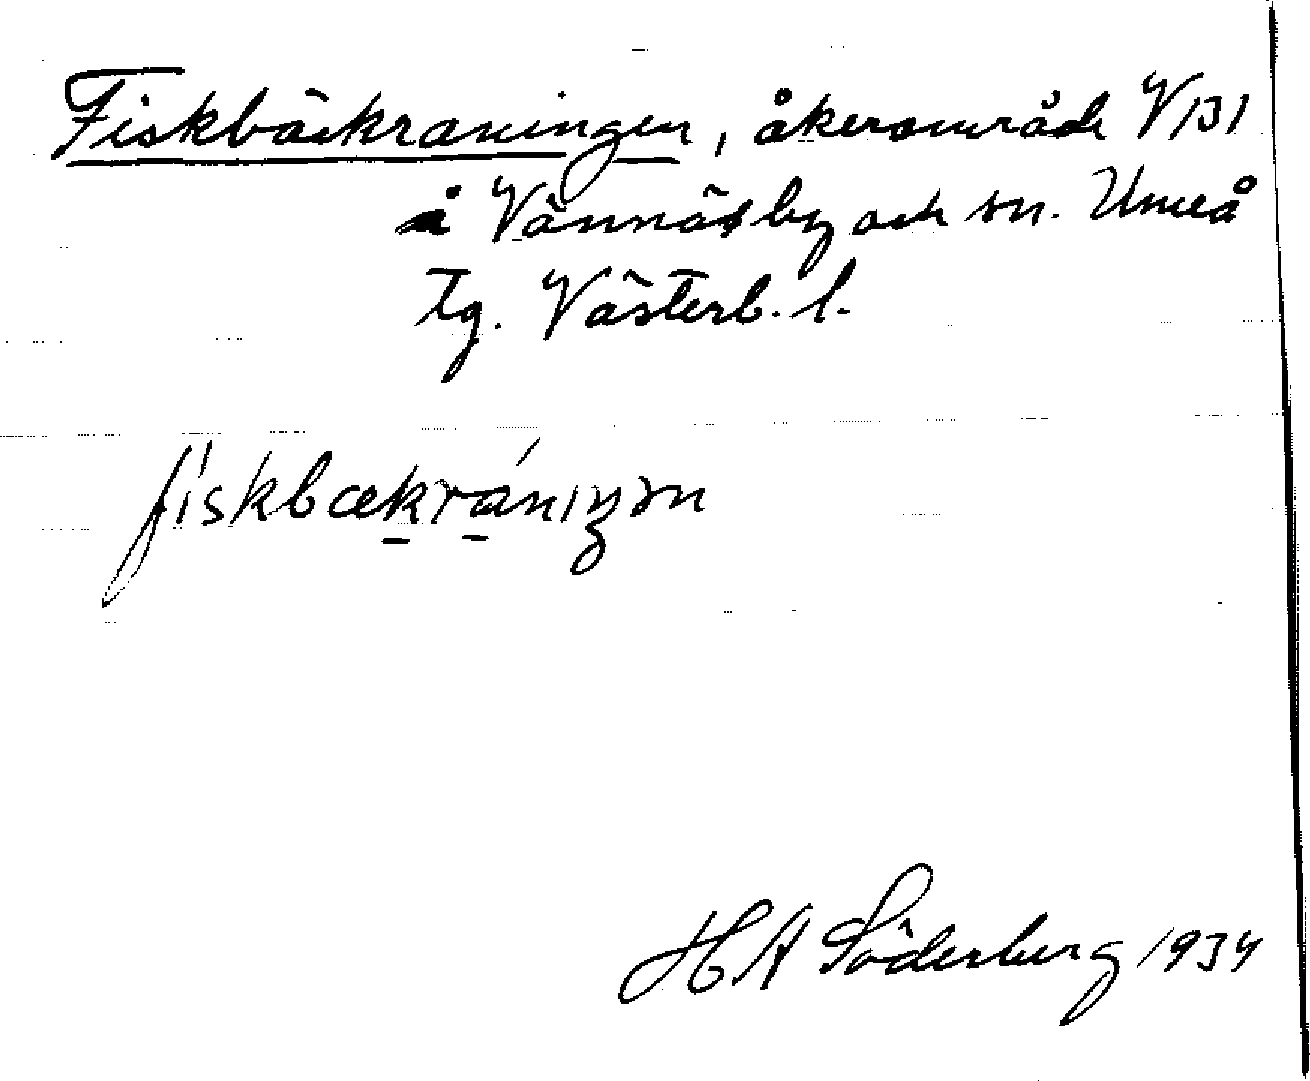 Fiskbäckraningen, åkerområde VIBI
å Vännäsby och sn. Umeå
tg. Västerb. l.
fiskbækrániŋən
H A Söderberg 1934